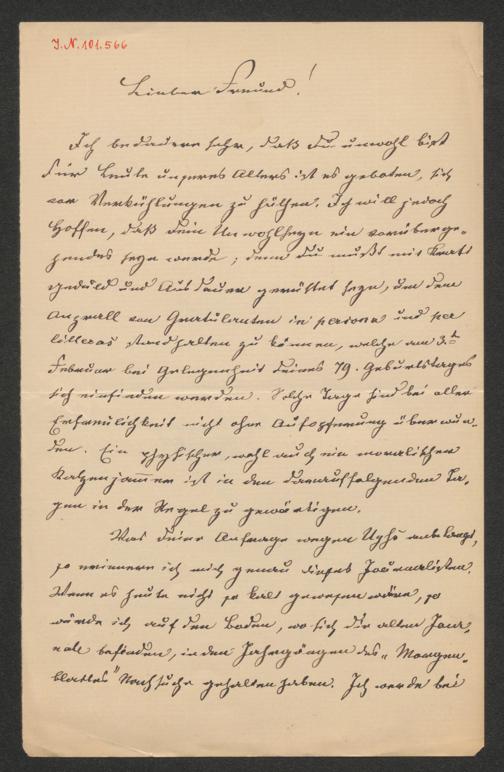 J.N. 101.566
Lieber Freund!
Ich bedauere sehr, daß Du unwohl bist
Für Leute unseres Alters ist es geboten, sich
vor Verkühlungen zu hüthen. Ich will jedoch
hoffen, daß dein Unwohlseyn ein vorüberge-
hendes seyn werde; denn Du mußt mit Kraft
Geduld und Ausdauer gerüstet seyn, um dem
Anprall von Gratulanten in persona und per
litteras standhalten zu können, welche am 3ten
Februar bei Gelegenheit deines 79. Geburtstages
sich einfinden werden. Solche Tage sind bei aller
Erfreulichkeit nicht ohne Aufopferung überwun-
den. Ein physischer, wohl auch ein moralischer
Katzenjammer ist in den darauffolgenden Ta-
gen in der Regel zu gewärtigen.
Was deine Anfrage wegen anbelangt,
so erinnere ich mich genau dieses Journalisten.
Wenn es heute nicht so kalt gewesen wäre, so
würde ich auf den Boden, wo sich die alten Jour-
nale befinden, in den Jahrgängen des „Morgen-
blattes" Nachsuche gehalten haben. Ich werde bei